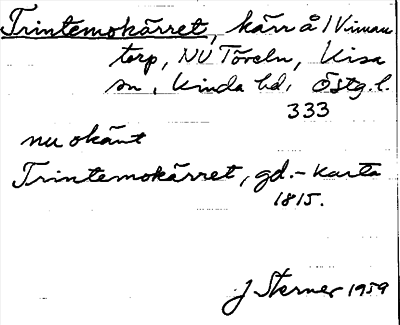 Trintemokärret, kärr å 1 Viman
torp, NV Töveln, Kisa
sn, Kinda hd, Östg.l.
333
nu okänt
Trintemokärret, gd.- karta
1815.
J Sterner 1959